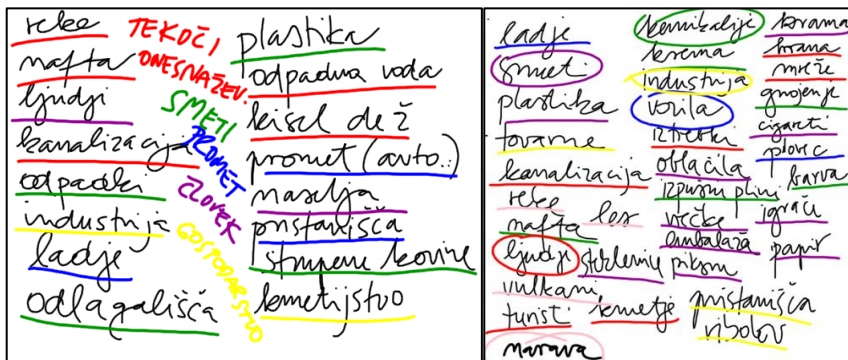 reke
nafta
ljudji
kanalizacija
odpadki
industrija
ladje
odlagališča
TEKOČI
ONESNAŽEV.
SMETI
PROMET
ČLOVEK
GOSPODARSTVO
plastika
odpadna voda
kisel dež
promet (avto..)
naselja
pristanišča
strupene kovine
kmetijstvo
ladje
smeti
plastika
tovarne
kanalizacija
reke
les
nafta
ljudje
steklenice
vulkani
turisti
kmetje
narava
kemikalije
krema
industrija
vozila
iztrebki
oblačila
izpušni plini
vrečke
embalaža
pristanišča
ribolov
hrana
mreže
gnojenje
cigareti
plovec
barva
igrače
papir